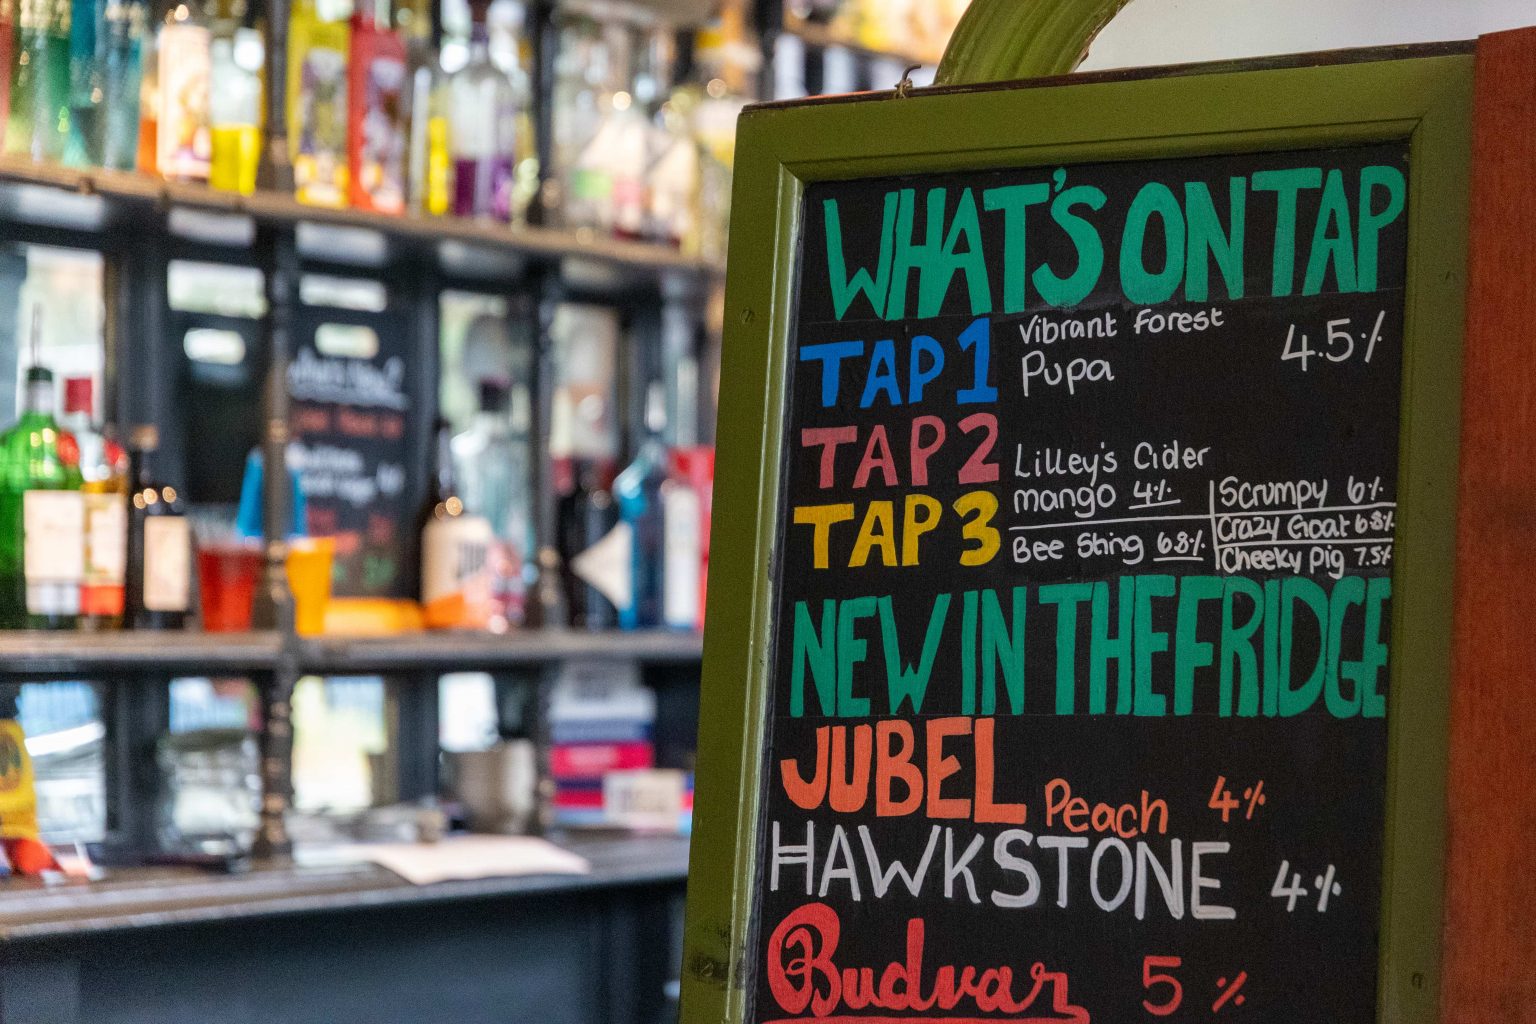 WHAT'S ON TAP
TAP 1 Vibrant Forest
Pupa 4.5%
TAP 2 Lilley's Cider
mango 4% Scrumpy 6%
TAP 3 Bee Sting 6.8% Crazy Goat 6.8%
Cheeky Pig 7.5%
NEW IN THE FRIDGE
JUBEL Peach 4%
HAWKSTONE 4%
Budvar 5%